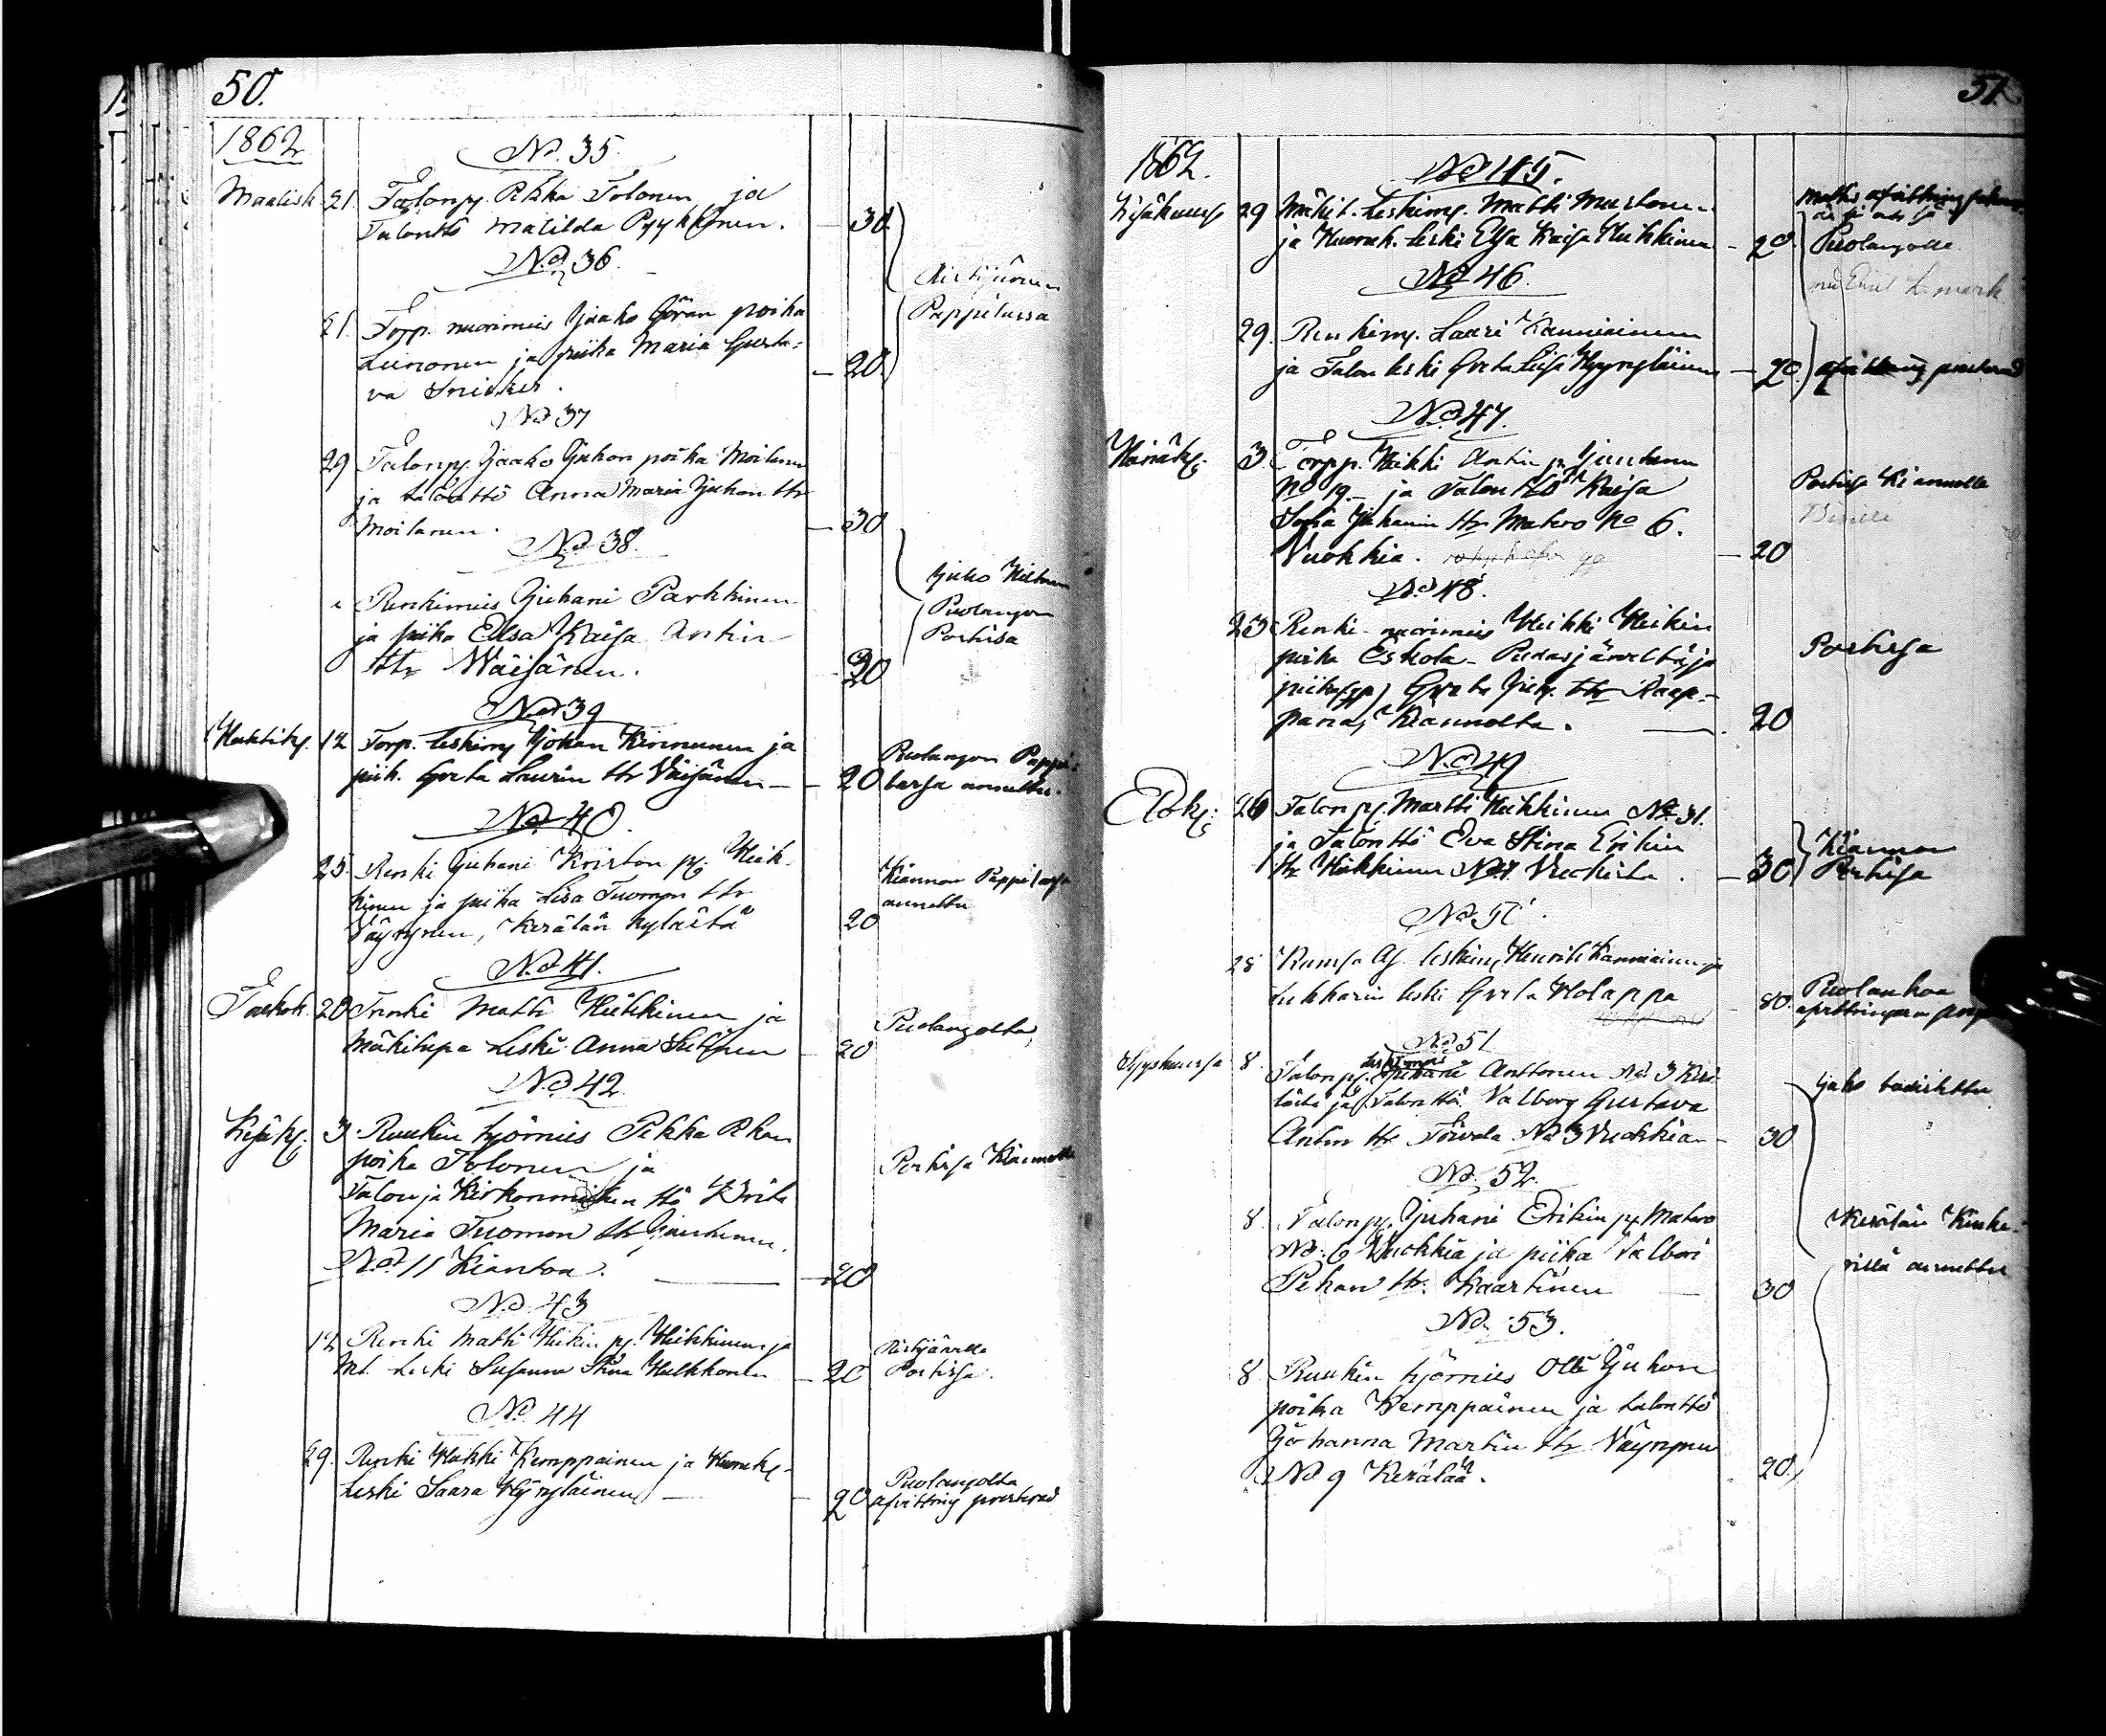 50.
1862
No. 35
Maalisk. 21. Talonp. Pekka Tolonen ja
Talontr Matilda Pyykkönen. — 30
No. 36
Ristijärven
Pappilassa
21. Torp. nuorimies Jaako Göran poika
Leinonen ja piika Maria Gusta-
va Snicker. — 20
No 37
29 Talonp. Jaako Juhon poika Moilanen
ja talontr Anna Maria Juhon ttr
Moilanen. — 30
No 38.
Juho
Puolangon
Portissa
Renkimies Juhani Parkkinen
ja piika Elsa Kaisa Antin
ttr Wäisänen. 20
No 39
Huhtik. 12 Torp. leskimy Johan Kinnunen ja
piik. Greta Laurin ttr Väisänen — 20
Puolangon Pappi-
lassa annettu.
No. 40.
25. Renki Juhani Kriston p. Heik-
kinen ja piika Lisa Tuomon ttr
Väyrynen, Kerälän kylästä 20
Kiannon Pappilassa
annettu
No. 41.
Toukok. 20 Renki Matti Heikkinen ja
Mäkitupa Leski Anna 20
Puolangolta
No 42
Kesäk. 3. Ruukin työmies Pekka Pekan
poika Tolonen ja
Talon ja Kirkonmiehen ttr Brita
Maria Tuomon ttr
No 11 Kiantoa. — 20
Portissa Kiannolla
No. 43
12 Renki Matti Heikin p. Heikkinen ja
Mt. Leski Susanna Stina Hulkkonen — 20
Ristijärvellä
Portissa.
No. 44
29. Renki Heikki Kemppainen ja
Leski Saara Hyryläinen — 20
Puolangolta
afvittring presterad
51.
1862.
No 45.
Kesäkuussa 29 Mäkit. Leskimy. Matti Mustonen
ja Leski Elsa Kaisa Heikkinen — 20
Puolangolle
No 46.
29. Renkimy. Lauri Kanniainen
ja Talon leski Greta Liisa Hyyryläinen — 20
afvittring presterad
No 47.
Heinäk. 3. Torpp. Heikki Antin p. Juntunen
No 19. — ja Talon ttr Kaisa
Sofia Juhanin ttr Matero No 6.
Vuokkia. — 20
Portissa Kiannolle
No 48.
23 Renki nuorimies Heikki Heikin
poika Eskola Pudasjärveltä, ja
piika Greta Juh. ttr Raap-
pana, Kiannolta. 20
Portissa
No 49
Elok. 26 Talonp. Martti Heikkinen No 31.
ja Talontr Eva Stina Erikin
ttr Heikkinen No 7 Vuokista. — 30
Kiannon
Portissa
No 50.
28 leskimy Henrik Kanniainen ja
Lukkarin leski Greta Holappa — 80.
Puolankoa
No 51
Syyskuussa 8. Talonp. leskimies Anttonen No 3 Kerä-
lästä ja Talon ttr Valborg Gustava
Antin ttr Toivola No 3 Vuokkia — 30
No. 52.
8. Talonp. Juhani Erikin p. Matero
No. 6 Vuokkia ja piika Valbori
Pekan ttr. Kaartinen 30
Kerälän Kinke-
rillä annettu
No. 53.
8 Ruukin työmies Olli Juhon
poika Kemppainen ja talonttr
Johanna Martin ttr Väyrynen
No 9 Kerälää. 20